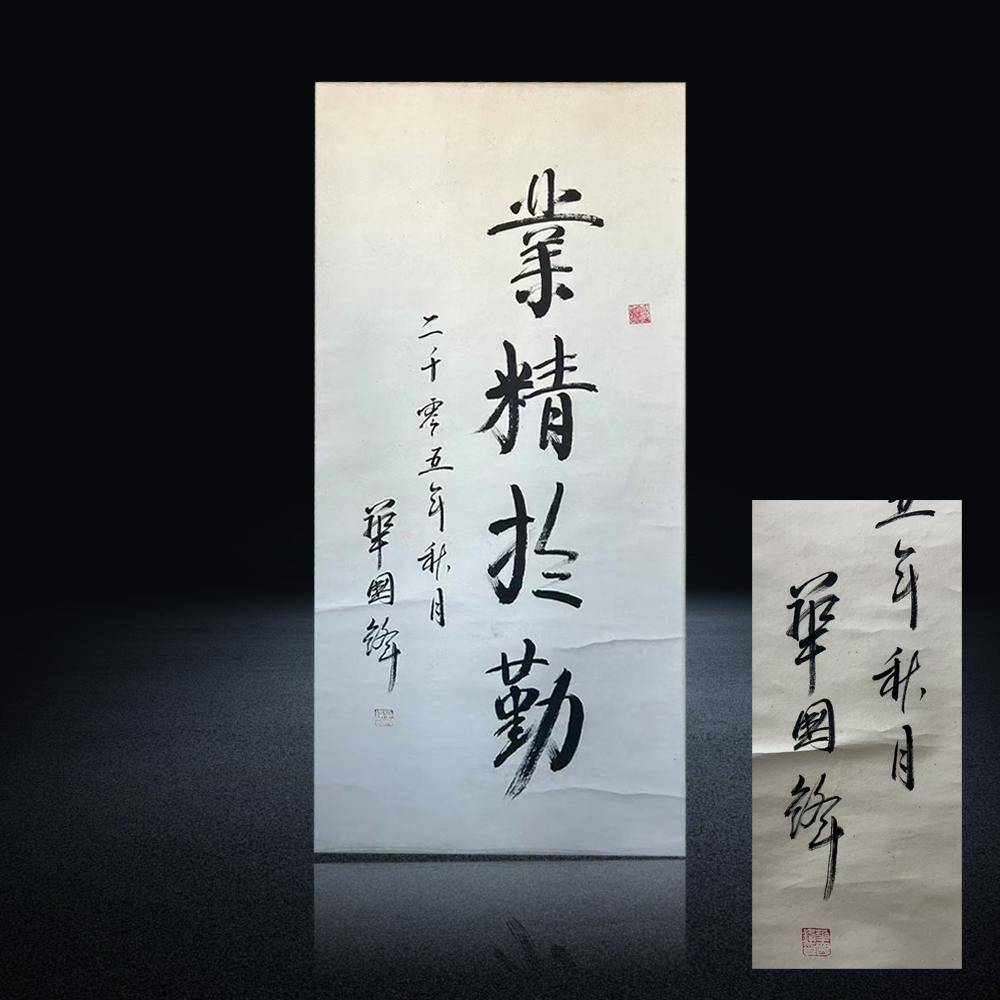 業精於勤
二千零五年秋月
華國鋒
五年秋月
華國鋒